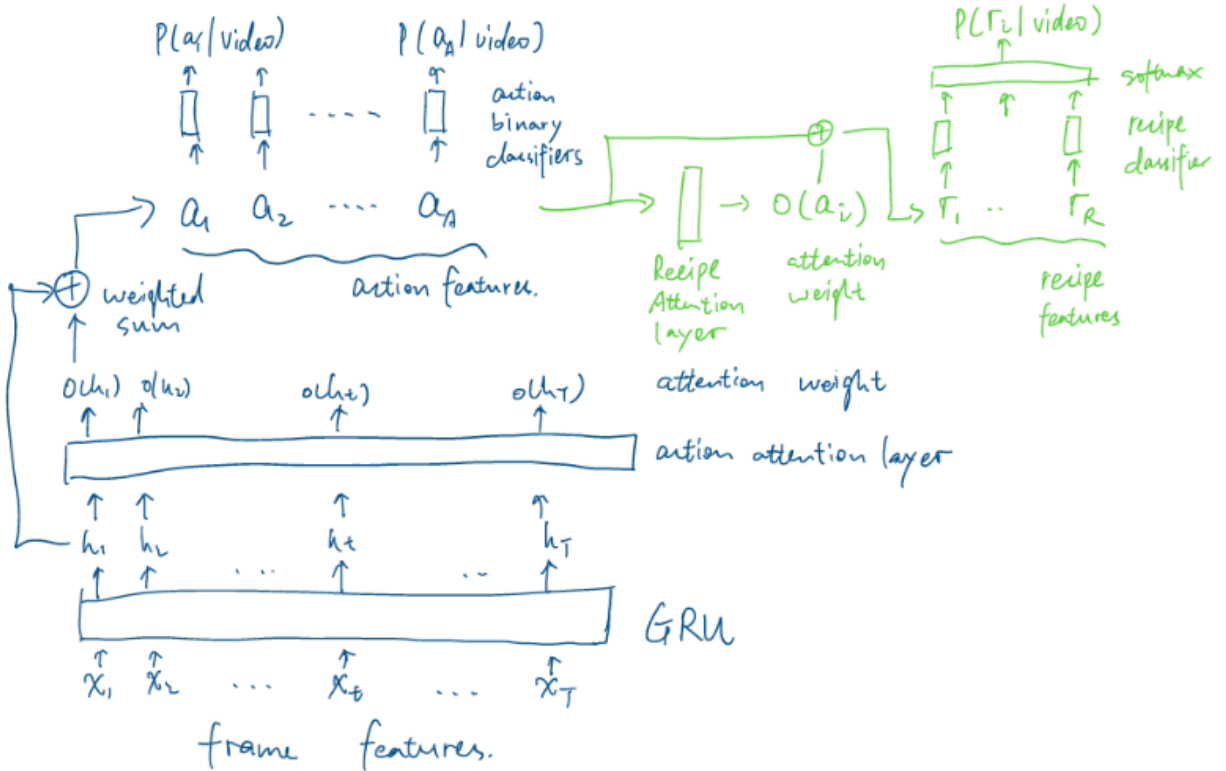 P(a₁|video) P(a_A|video)
action
binary
classifiers
a₁ a₂ .... a_A
action features.
weighted
sum
o(h₁) o(h₂) o(h_t) o(h_T) attention weight
action attention layer
h₁ h₂ ... h_t .. h_T
GRU
x₁ x₂ ... x_t ... x_T
frame features.
P(r_i|video)
softmax
recipe
classifier
o(a_i) r₁ .. r_R
Recipe
Attention
layer
attention
weight
recipe
features